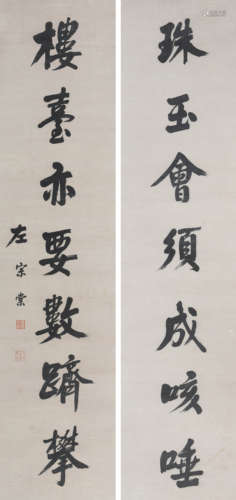 珠玉會須成咳唾
樓臺亦要數躋攀
左宗棠